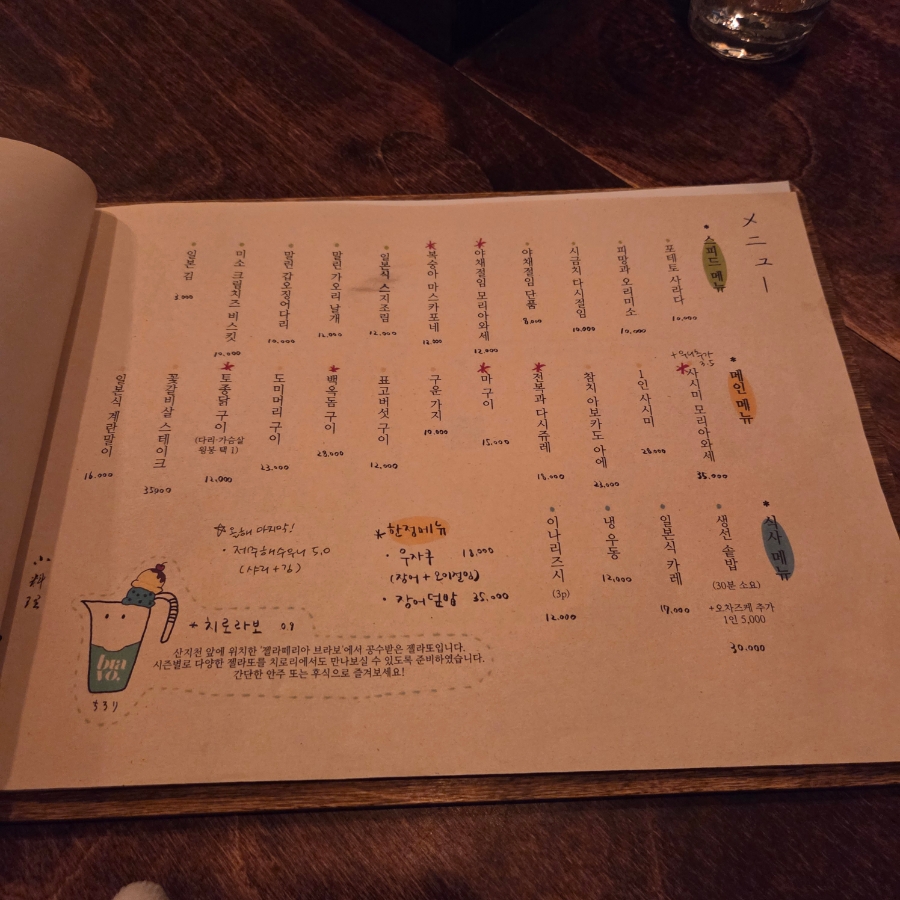 メニュー
* 스피드 메뉴
포테토 사라다
10,000
피망과 오리미소
10,000
시금치 다시절임
10,000
야채절임 단품
8,000
야채절임 모리아와세
12,000
복숭아 마스카포네
12,000
일본식 스지조림
12,000
말린 가오리 날개
12,000
말린 갑오징어다리
10,000
미소 크림치즈 비스킷
10,000
일본 김
3,000
* 메인 메뉴
사시미 모리아와세
35,000
1인 사시미
28,000
참치 아보카도 아에
23,000
전복과 다시쥬레
18,000
마 구이
15,000
구운 가지
10,000
표고버섯 구이
12,000
백옥돔 구이
28,000
도미머리 구이
23,000
토종닭 구이
(다리·가슴살
윙봉 택 1)
12,000
꽃갈비살 스테이크
35,000
일본식 계란말이
16,000
* 식사 메뉴
생선 솥밥
(30분 소요)
+오차즈케 추가
1인 5,000
30,000
일본식 카레
냉 우동
12,000
이나리즈시
(3p)
12,000
* 한정메뉴
· 우자쿠 18,000
(장어 + 오이절임)
· 장어덮밥 35,000
☆ 올해 마지막!
· 제주해수우니 5.0
(샤리+김)
* 치로라보 0.9
산지천 앞에 위치한 '젤라떼리아 브라보'에서 공수받은 젤라또입니다.
시즌별로 다양한 젤라또를 치로리에서도 만나보실 수 있도록 준비하였습니다.
간단한 안주 또는 후식으로 즐겨보세요!
bra
vo.
ちろり
小料理